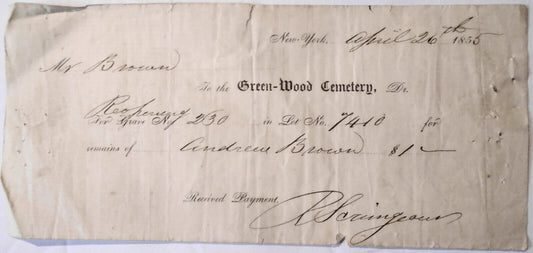 New-York, April 26th 1855
Mr Brown
To the Green-Wood Cemetery, Dr.
Reopening
For Grave No 230 in Lot No. 7410 for
remains of Andrew Brown $1 —
Received Payment,
R Scrimgeour